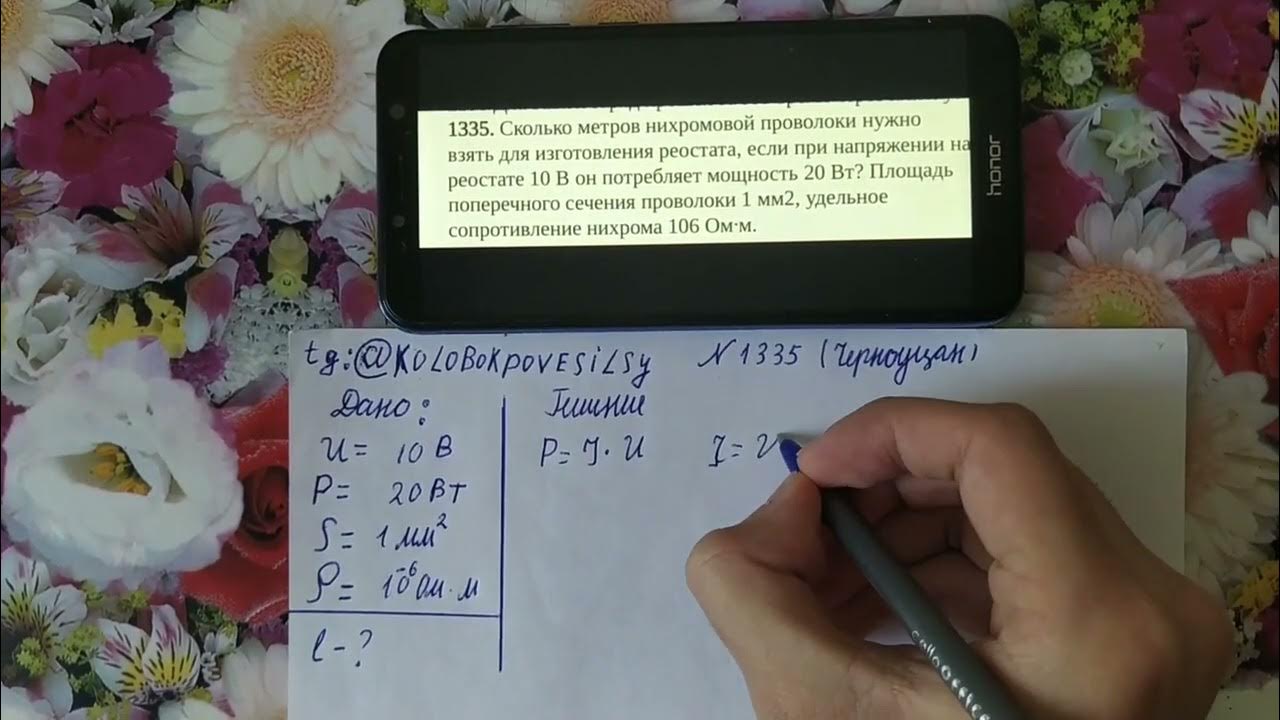 1335. Сколько метров нихромовой проволоки нужно
взять для изготовления реостата, если при напряжении на
реостате 10 В он потребляет мощность 20 Вт? Площадь
поперечного сечения проволоки 1 мм2, удельное
сопротивление нихрома 106 Ом·м.
honor
tg:@KOLOBOKPOVESiLSy N 1335 (Черноуцан)
Дано: Решение
U = 10 В P = I · U I = U
P = 20 Вт
S = 1 мм²
ρ = 10⁻⁶ Ом · м
l - ?